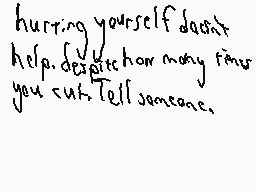 hurting yourself doesn't
help. despite how many times
you cut. Tell someone.